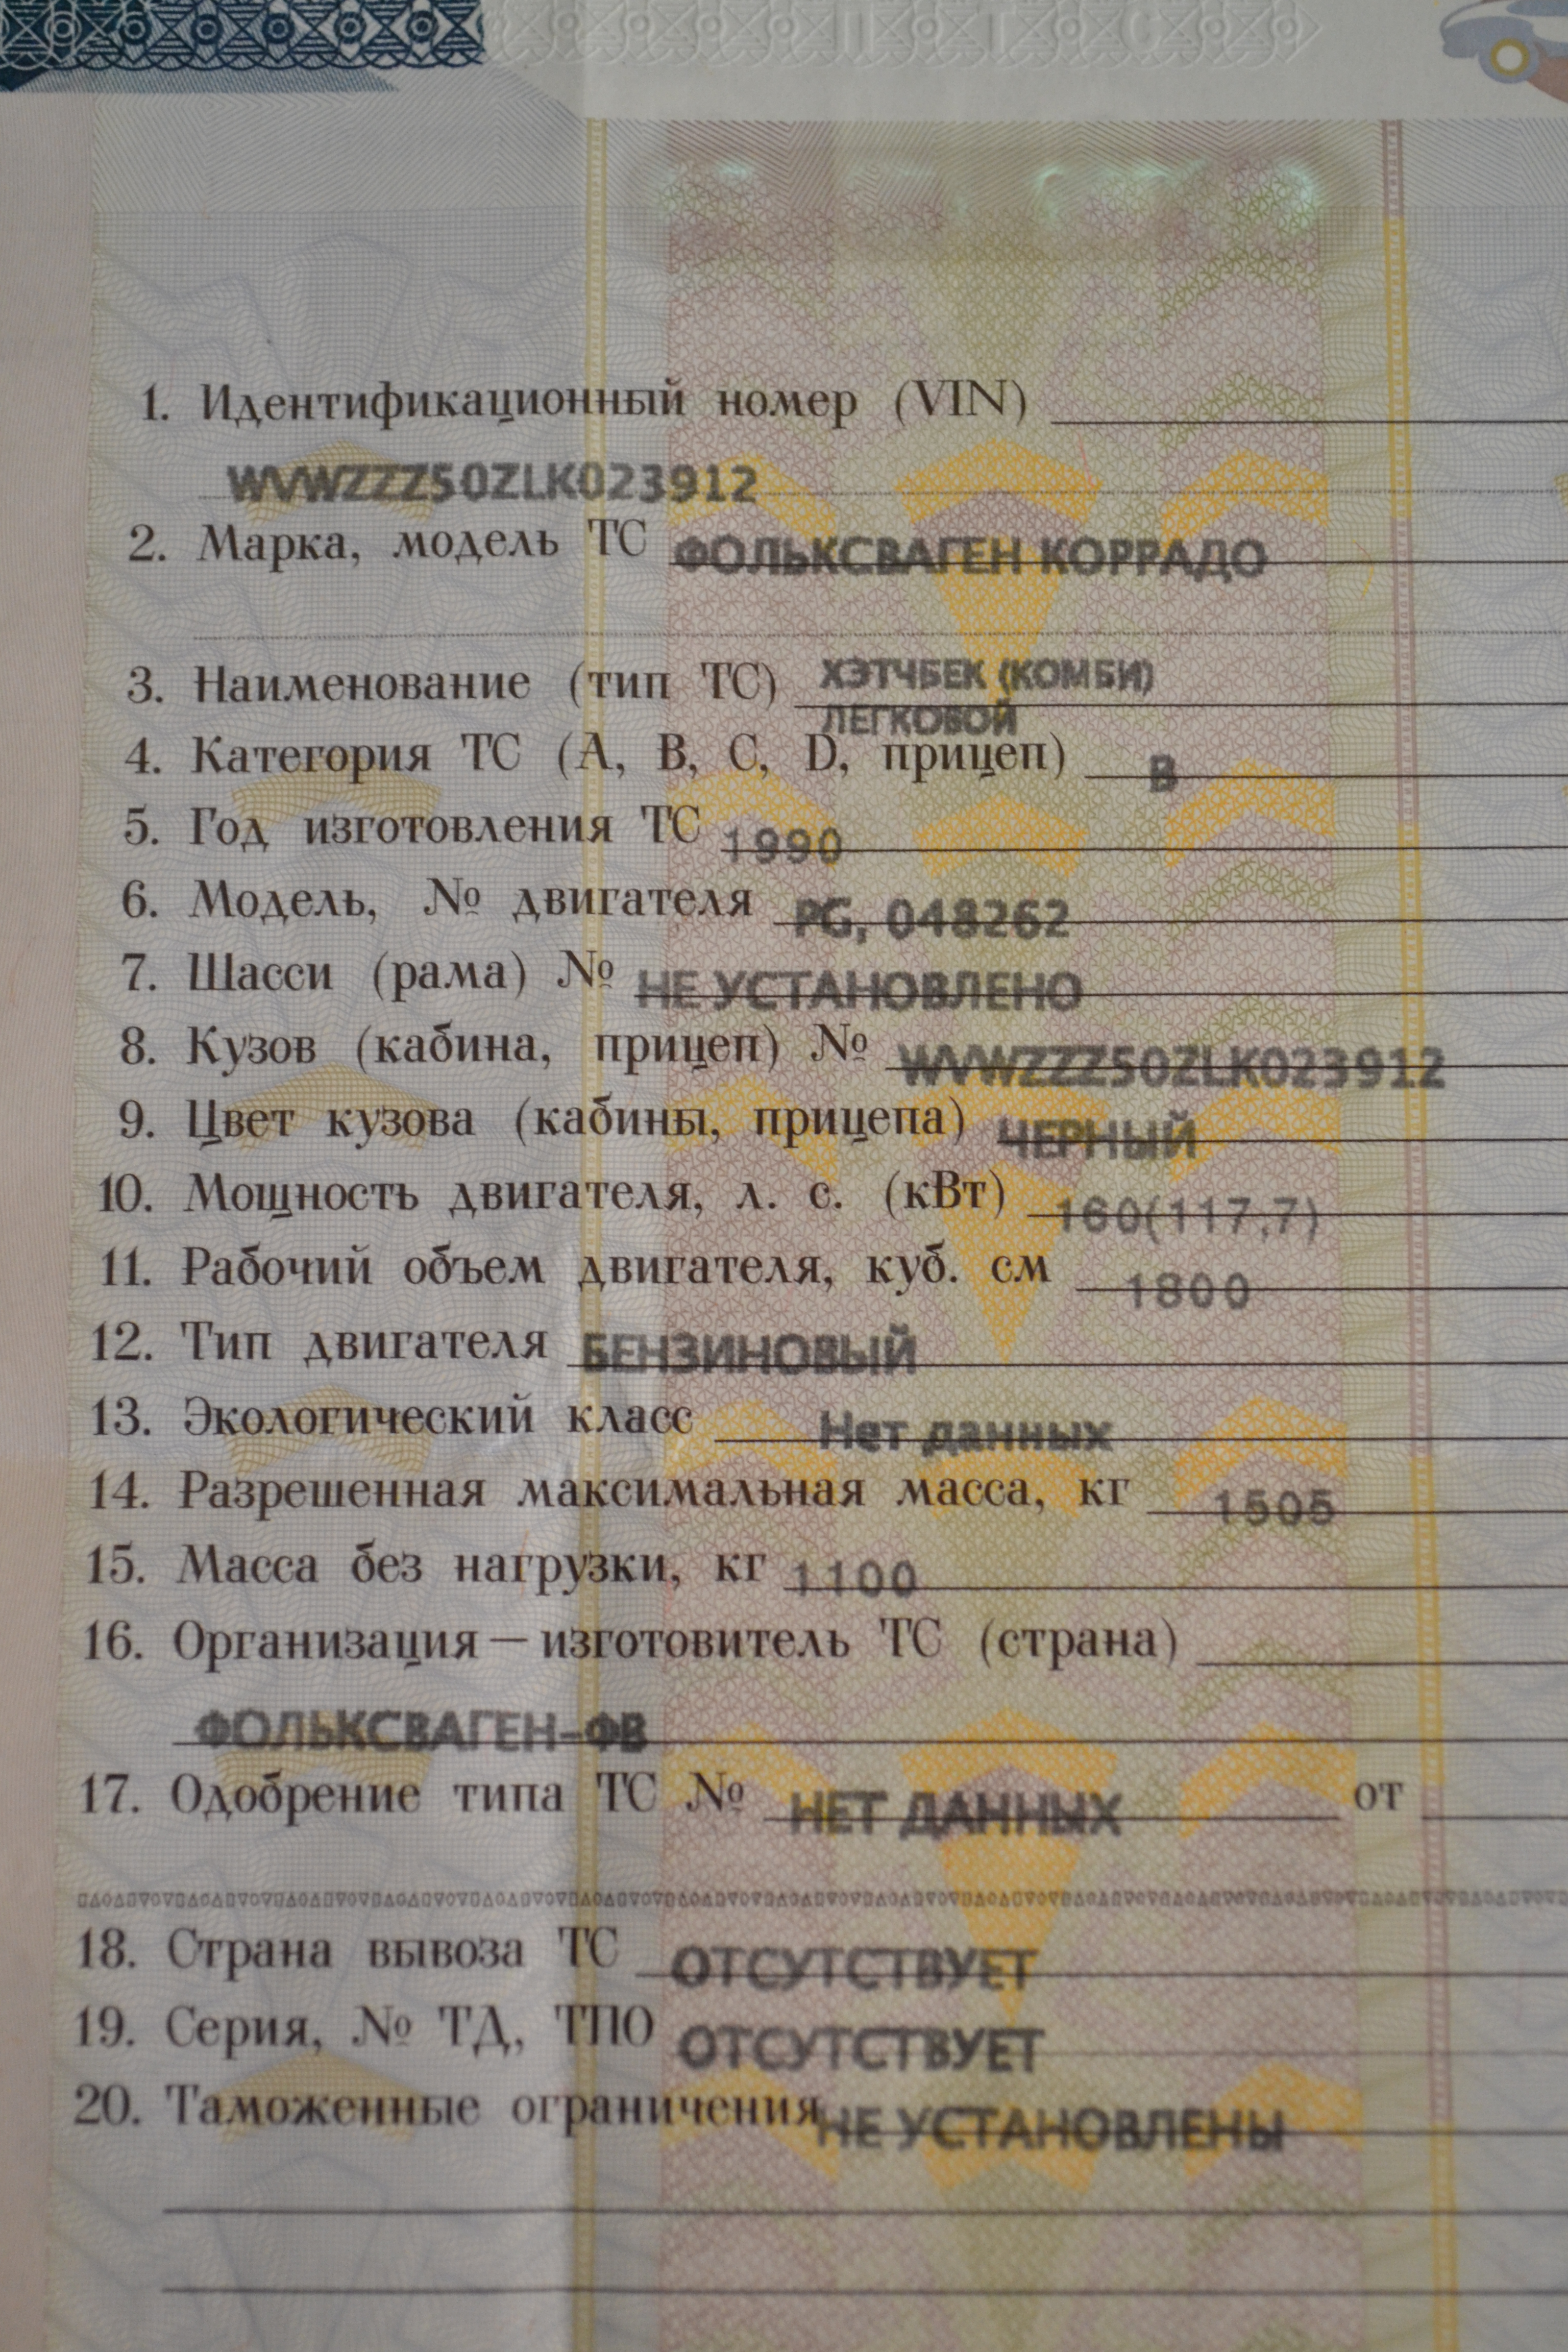 1. Идентификационный номер (VIN)
WVWZZZ50ZLK023912
2. Марка, модель ТС ФОЛЬКСВАГЕН КОРРАДО
3. Наименование (тип ТС) ХЭТЧБЕК (КОМБИ)
ЛЕГКОВОЙ
4. Категория ТС (A, B, C, D, прицеп) B
5. Год изготовления ТС 1990
6. Модель, № двигателя PG, 048262
7. Шасси (рама) № НЕ УСТАНОВЛЕНО
8. Кузов (кабина, прицеп) № WVWZZZ50ZLK023912
9. Цвет кузова (кабины, прицепа) ЧЕРНЫЙ
10. Мощность двигателя, л. с. (кВт) 160(117,7)
11. Рабочий объем двигателя, куб. см 1800
12. Тип двигателя БЕНЗИНОВЫЙ
13. Экологический класс Нет данных
14. Разрешенная максимальная масса, кг 1505
15. Масса без нагрузки, кг 1100
16. Организация – изготовитель ТС (страна)
ФОЛЬКСВАГЕН-ФВ
17. Одобрение типа ТС № НЕТ ДАННЫХ от
18. Страна вывоза ТС ОТСУТСТВУЕТ
19. Серия, № ТД, ТПО ОТСУТСТВУЕТ
20. Таможенные ограничения НЕ УСТАНОВЛЕНЫ